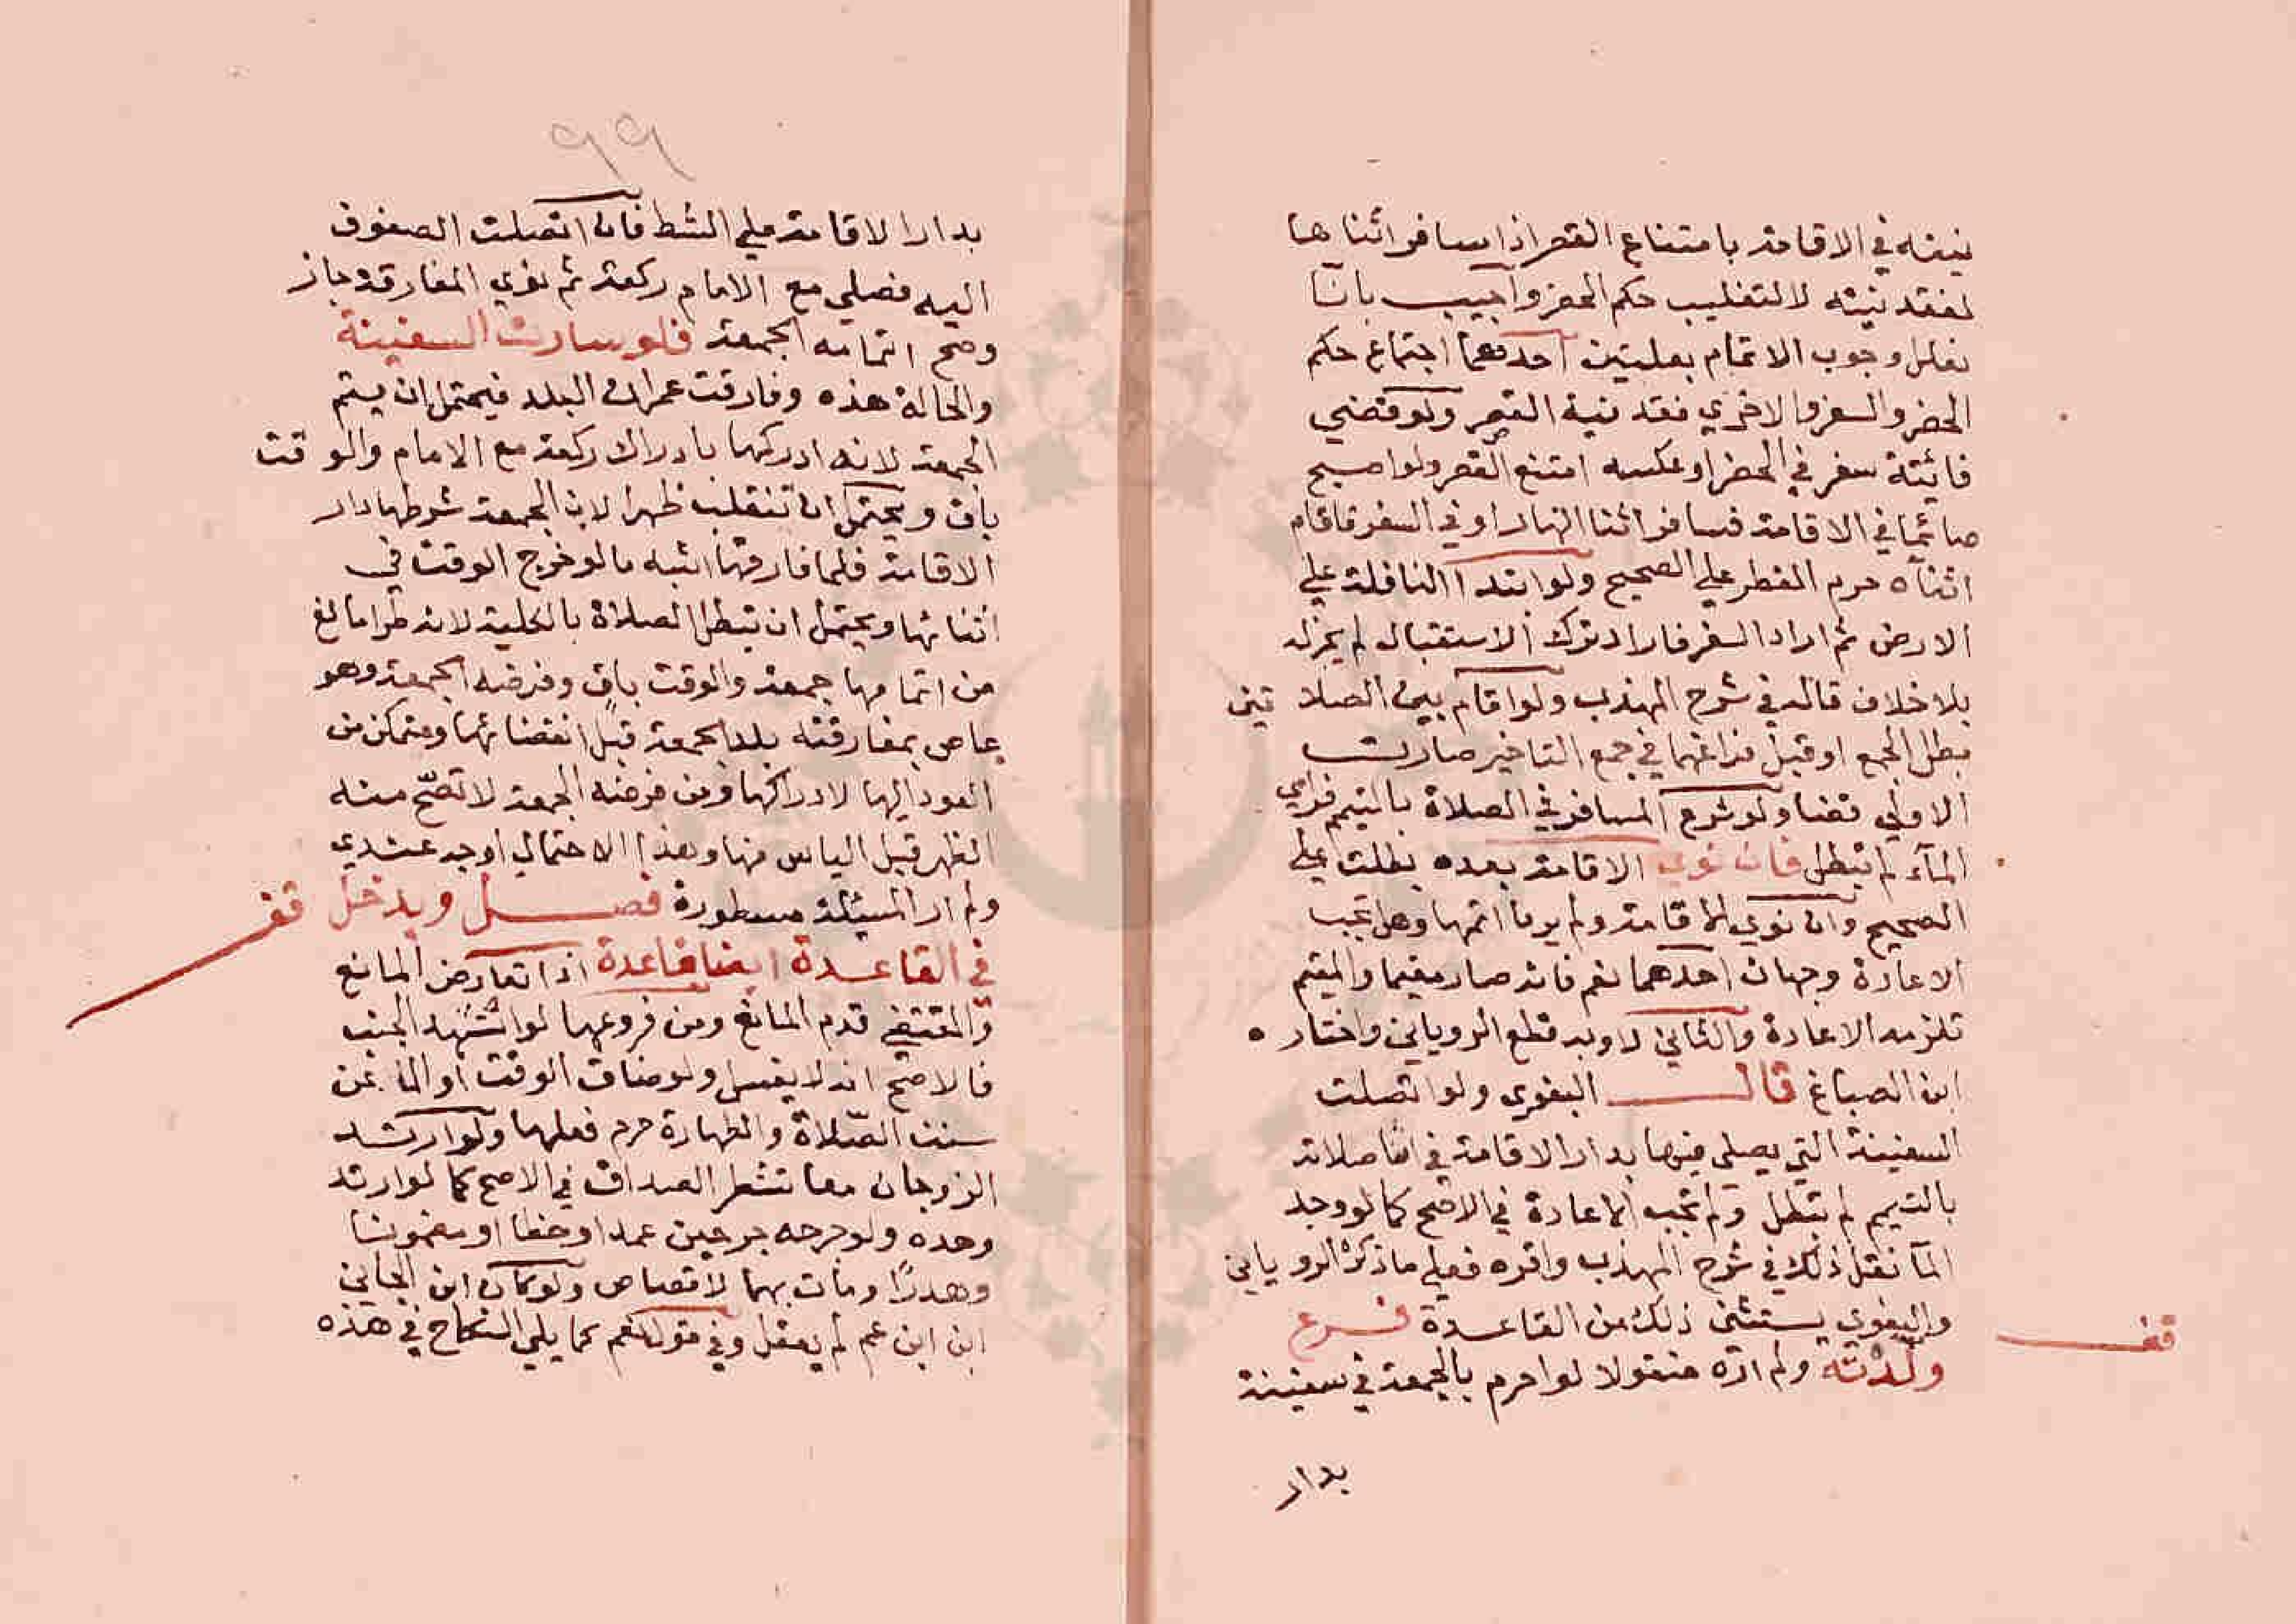 نيته في الاقامة بامتناع القصر اذا سافر اثناها
لفقد نيته لا لتغليب حكم الحضر واجيب بانا
نعلل وجوب الاتمام بعلتين احدهما اجتماع حكم
الحضر والسفر والاخري فقد نية القصر ولو قضي
فائتة سفر في الحضر او عكسه امتنع القصر ولو اصبح
صائما في الاقامة فسافر اثنا النهار او في السفر فاقام
اثناه حرم الفطر علي الصحيح ولو ابتدا النافلة علي
الارض ثم اراد السفر فاراد ترك الاستقبال لم يجز له
بلا خلاف قاله في شرح المهذب ولو اقام بين الصلا تين
بطل الجمع او قبل فراغهما في جمع التاخير صارت
الاولي قضا ولو شرع المسافر في الصلاة بالتيمم فراي
المآء لم تبطل فان نوي الاقامة بعده بطلت علي
الصحيح وان نوي الاقامة ولم ير ما اتمها وهل تجب
الاعادة وجهان احدهما نعم فانه صار مقيما والمقيم
تلزمه الاعادة والثاني لا وبه قطع الروياني واختاره
ابن الصباغ قال البغوي ولو اتصلت
السفينة التي يصلي فيها بدار الاقامة في اثنا صلاته
بالتيمم لم تبطل ولم تجب الاعادة في الاصح كما لو وجد
المآ نقل ذلك في شرح المهذب واقره فعلي ما ذكره الروياني
والبغوي يستثني ذلك من القاعدة فرع
قف
ولدته ولم اره منقولا لو احرم بالجمعة في سفينة
بدار
٩٩
بدار الاقامة علي الشط فان اتصلت الصفوف
اليه فصلي مع الامام ركعة ثم نوي المفارقة جاز
وصح اتمامه الجمعة فلو سارت السفينة
والحالة هذه وفارقت عمران البلد فيحتمل ان يتم
الجمعة لانه ادركها بادراك ركعة مع الامام والوقت
باق ويحتمل ان تنقلب ظهرا لان الجمعة شرطها دار
الاقامة فلما فارقها اشبه ما لو خرج الوقت في
اثنائها ويحتمل ان تبطل الصلاة بالكلية لانه طرا مانع
من اتمامها جمعة والوقت باق وفرضه الجمعة وهو
عاص بمفارقته بلد الجمعة قبل انقضائها ومتمكن من
العود اليها لادراكها ومن فرضه الجمعة لا تصح منه
الظهر قبل الياس منها وهذا الاحتمال اوجه عندي
ولم ار المسئلة مسطورة فصل ويدخل
قف
في القاعدة ايضا قاعدة اذا تعارض المانع
والمقتضي قدم المانع ومن فروعها لو استشهد الجنب
فالاصح انه لا يغسل ولو ضاق الوقت او الما عن
سنن الصلاة والطهارة حرم فعلها ولو ارتد
الزوجان معا تشطر الصداق في الاصح كما لو ارتد
وحده ولو جرحه جرحين عمدا وخطا او مضمونا
وهدرا ومات بهما لا قصاص ولو كان ابن الجاني
ابن ابن عم لم يعقل وفي قول نعم كما يلي النكاح في هذه